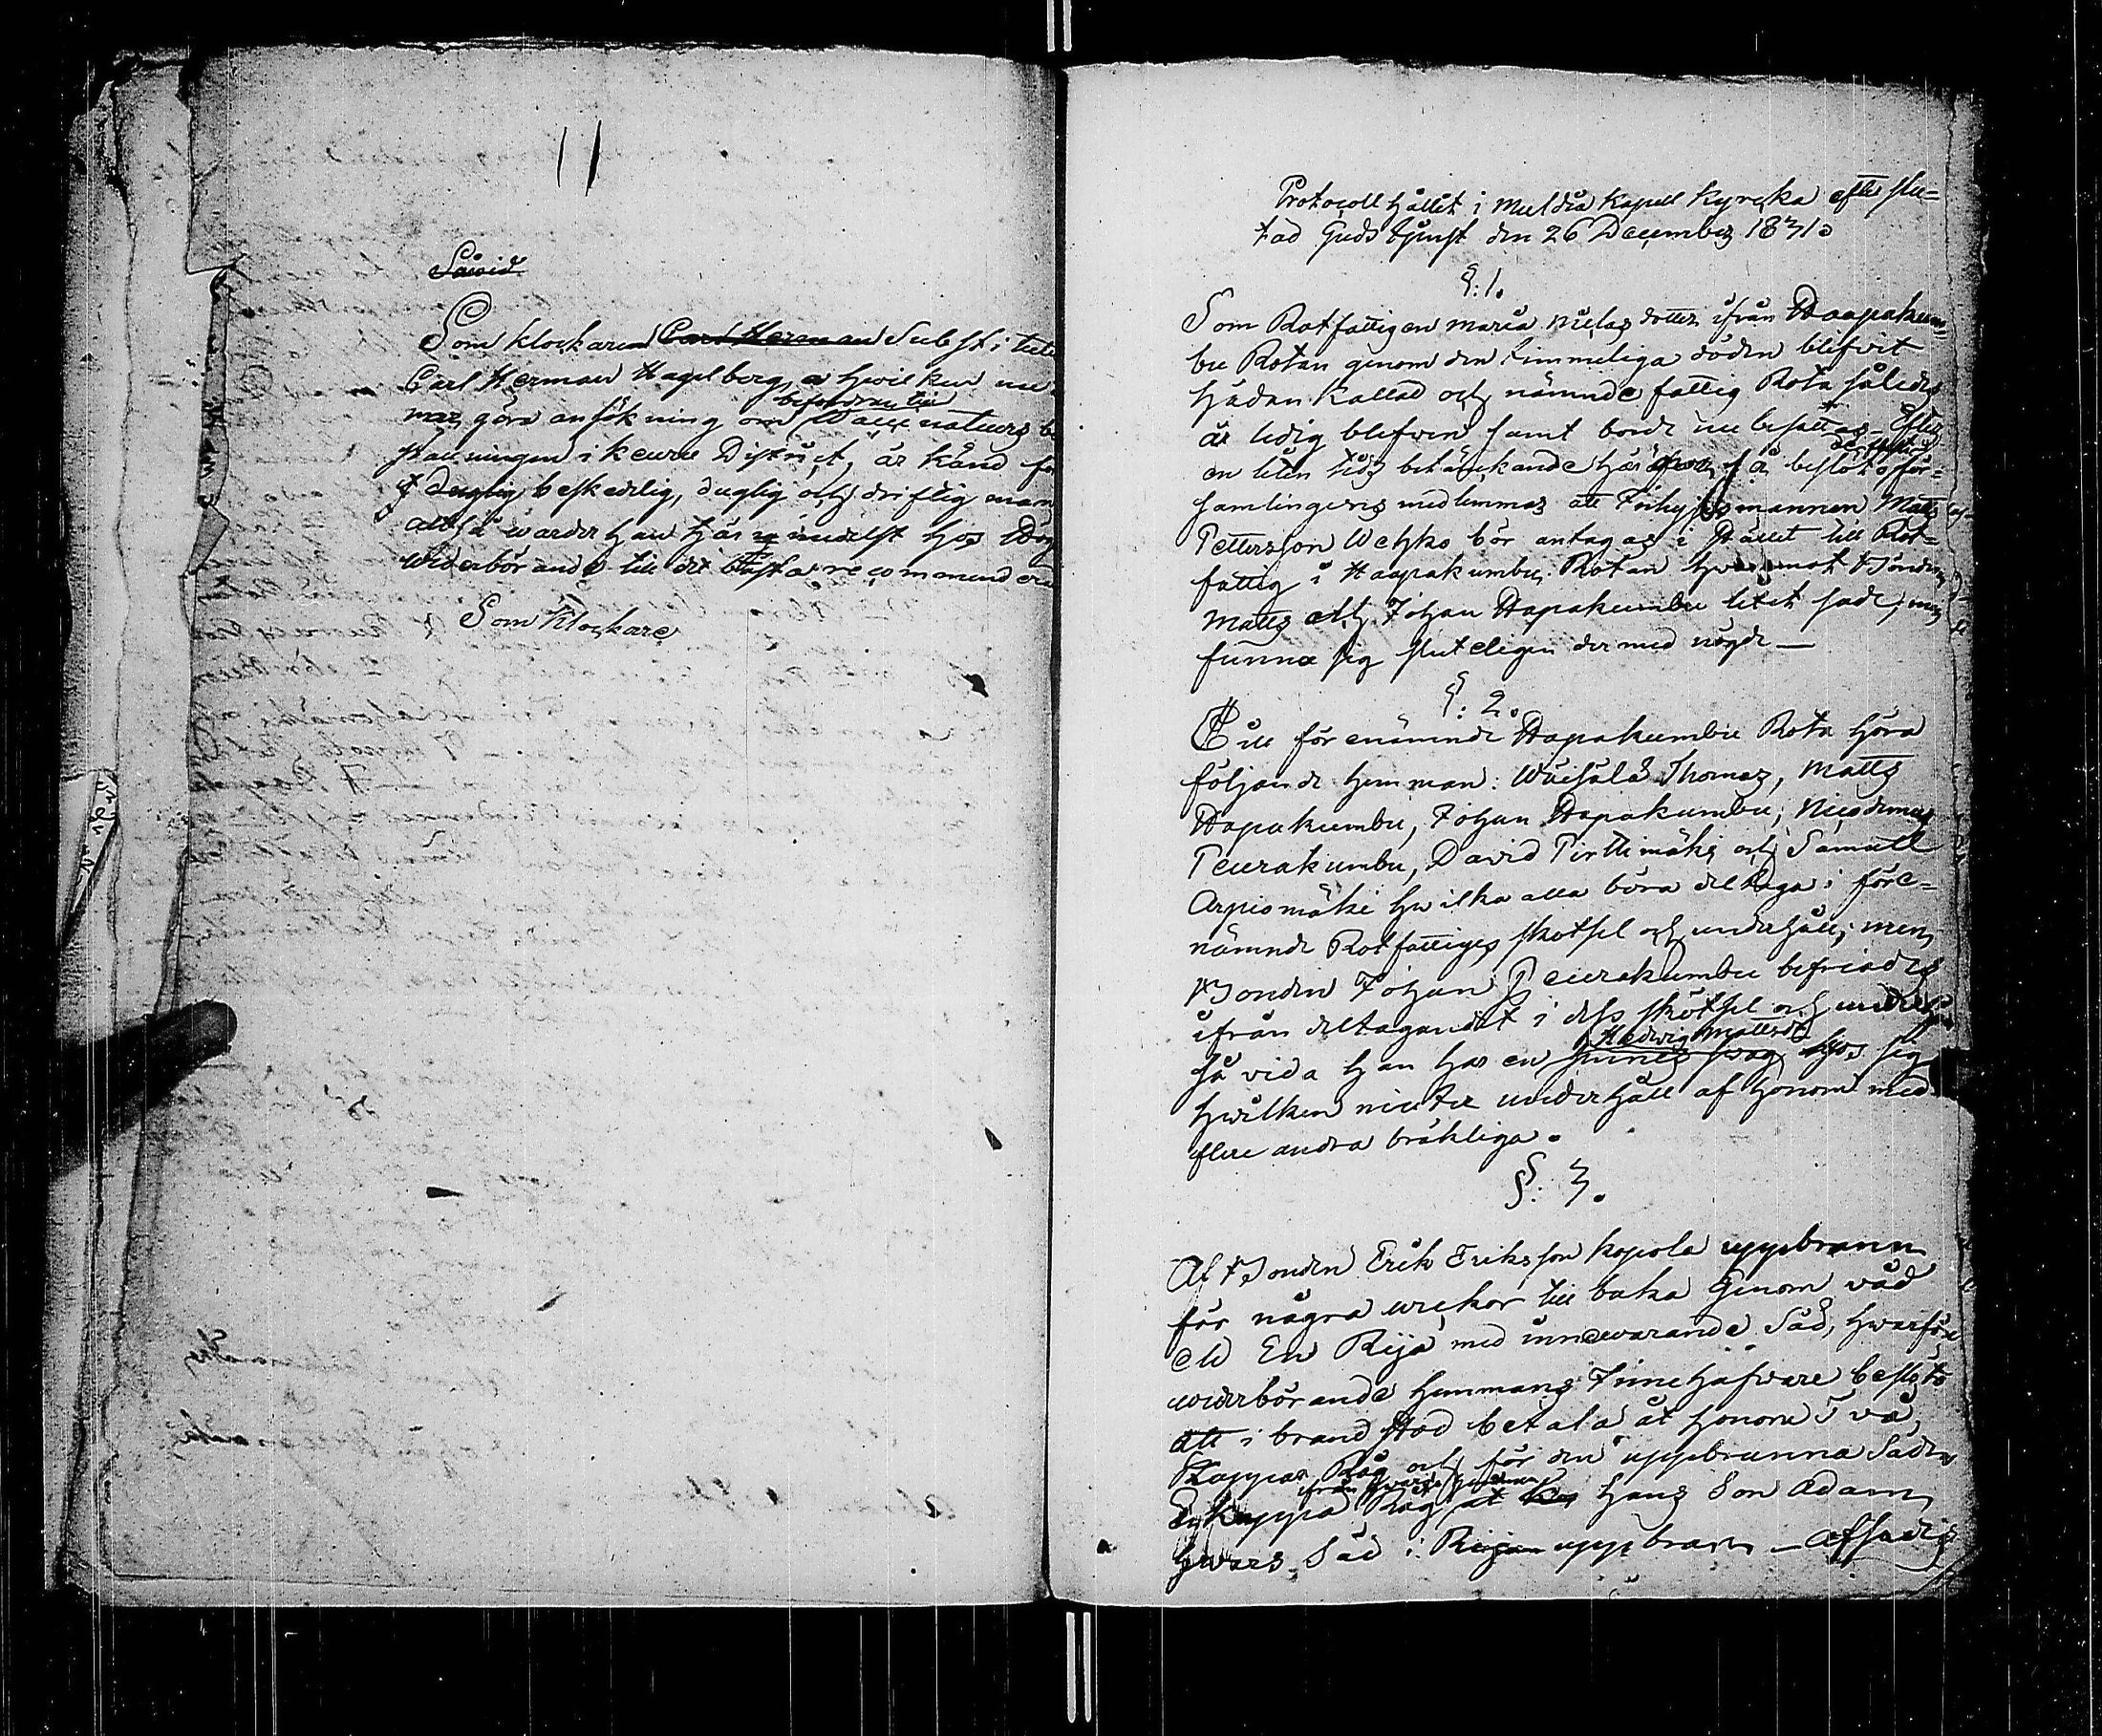 Såvid
Som klockaren Carl Herman Substitut
Carl Herman Hagelberg, hwilken
göra ansökning om befordran till Vaccinateurs
i Keuru District, är känd
Duglig beskedelig, duglig och driftig man
alltså warder han härmedelst hos Hög
Wederbörande till det bästa recommenderad
Som Klockare
Protocoll hållet i Multia Kapell Kyrcka efter slu-
tad Guds tjenst den 26 December 1831.
§: 1.
Som Rotfattigen Maria Nielsdotter ifrån Haapakum-
bu Rotan genom den timmeliga döden blifvit
hädan kallad och nämnde fattig Rota således
är ledig blefven samt borde nu besättas - Efter
en liten tids betänckande häröfver, så beslöto för-
samlingens medlemmar att Inhysesmannen Matts
Pettersson Wehko bör antagas i stället till Rot-
fattig i Haapakumbu Rotan hwaremot Bönderne
Matts och Johan Haapakumbu litet sade, men
funno sig sluteligen der med nögde —
§: 2.
Till förenämnde Hapakumbu Rota höra
följande hemman: Wäisälä Thomas, Matts
Hapakumbu, Johan Hapakumbu, Nicodemus
Peurakumbu, David Pirttimäki och Samuel
Arpiomäki hwilka alla böra deltaga i före-
nämnde Rotfattiges skötsel och underhåll; men
Bonden Johan Peurakumbu befriades
ifrån deltagandet i dess skötsel och underhåll
så vida han har en Hedwig Mattsdr hos sig
hwilken niuter underhåll af honom med
flere andra bräkliga.
§: 3.
Af Bonden Erik Eriksson Kopola uppbrann
för några weckor till baka Genom våd
eld En Rija med innewarande Säd, hwarföre
wederbörande hemmans Innehafware beslöto
att i brand stod betala åt honom två
Kappar Råg och för den uppbrunna Säden
En kappa Råg ifrån hwarje hemman hans Son Adam
hwars Säd i Rijan uppbrann — Afsades